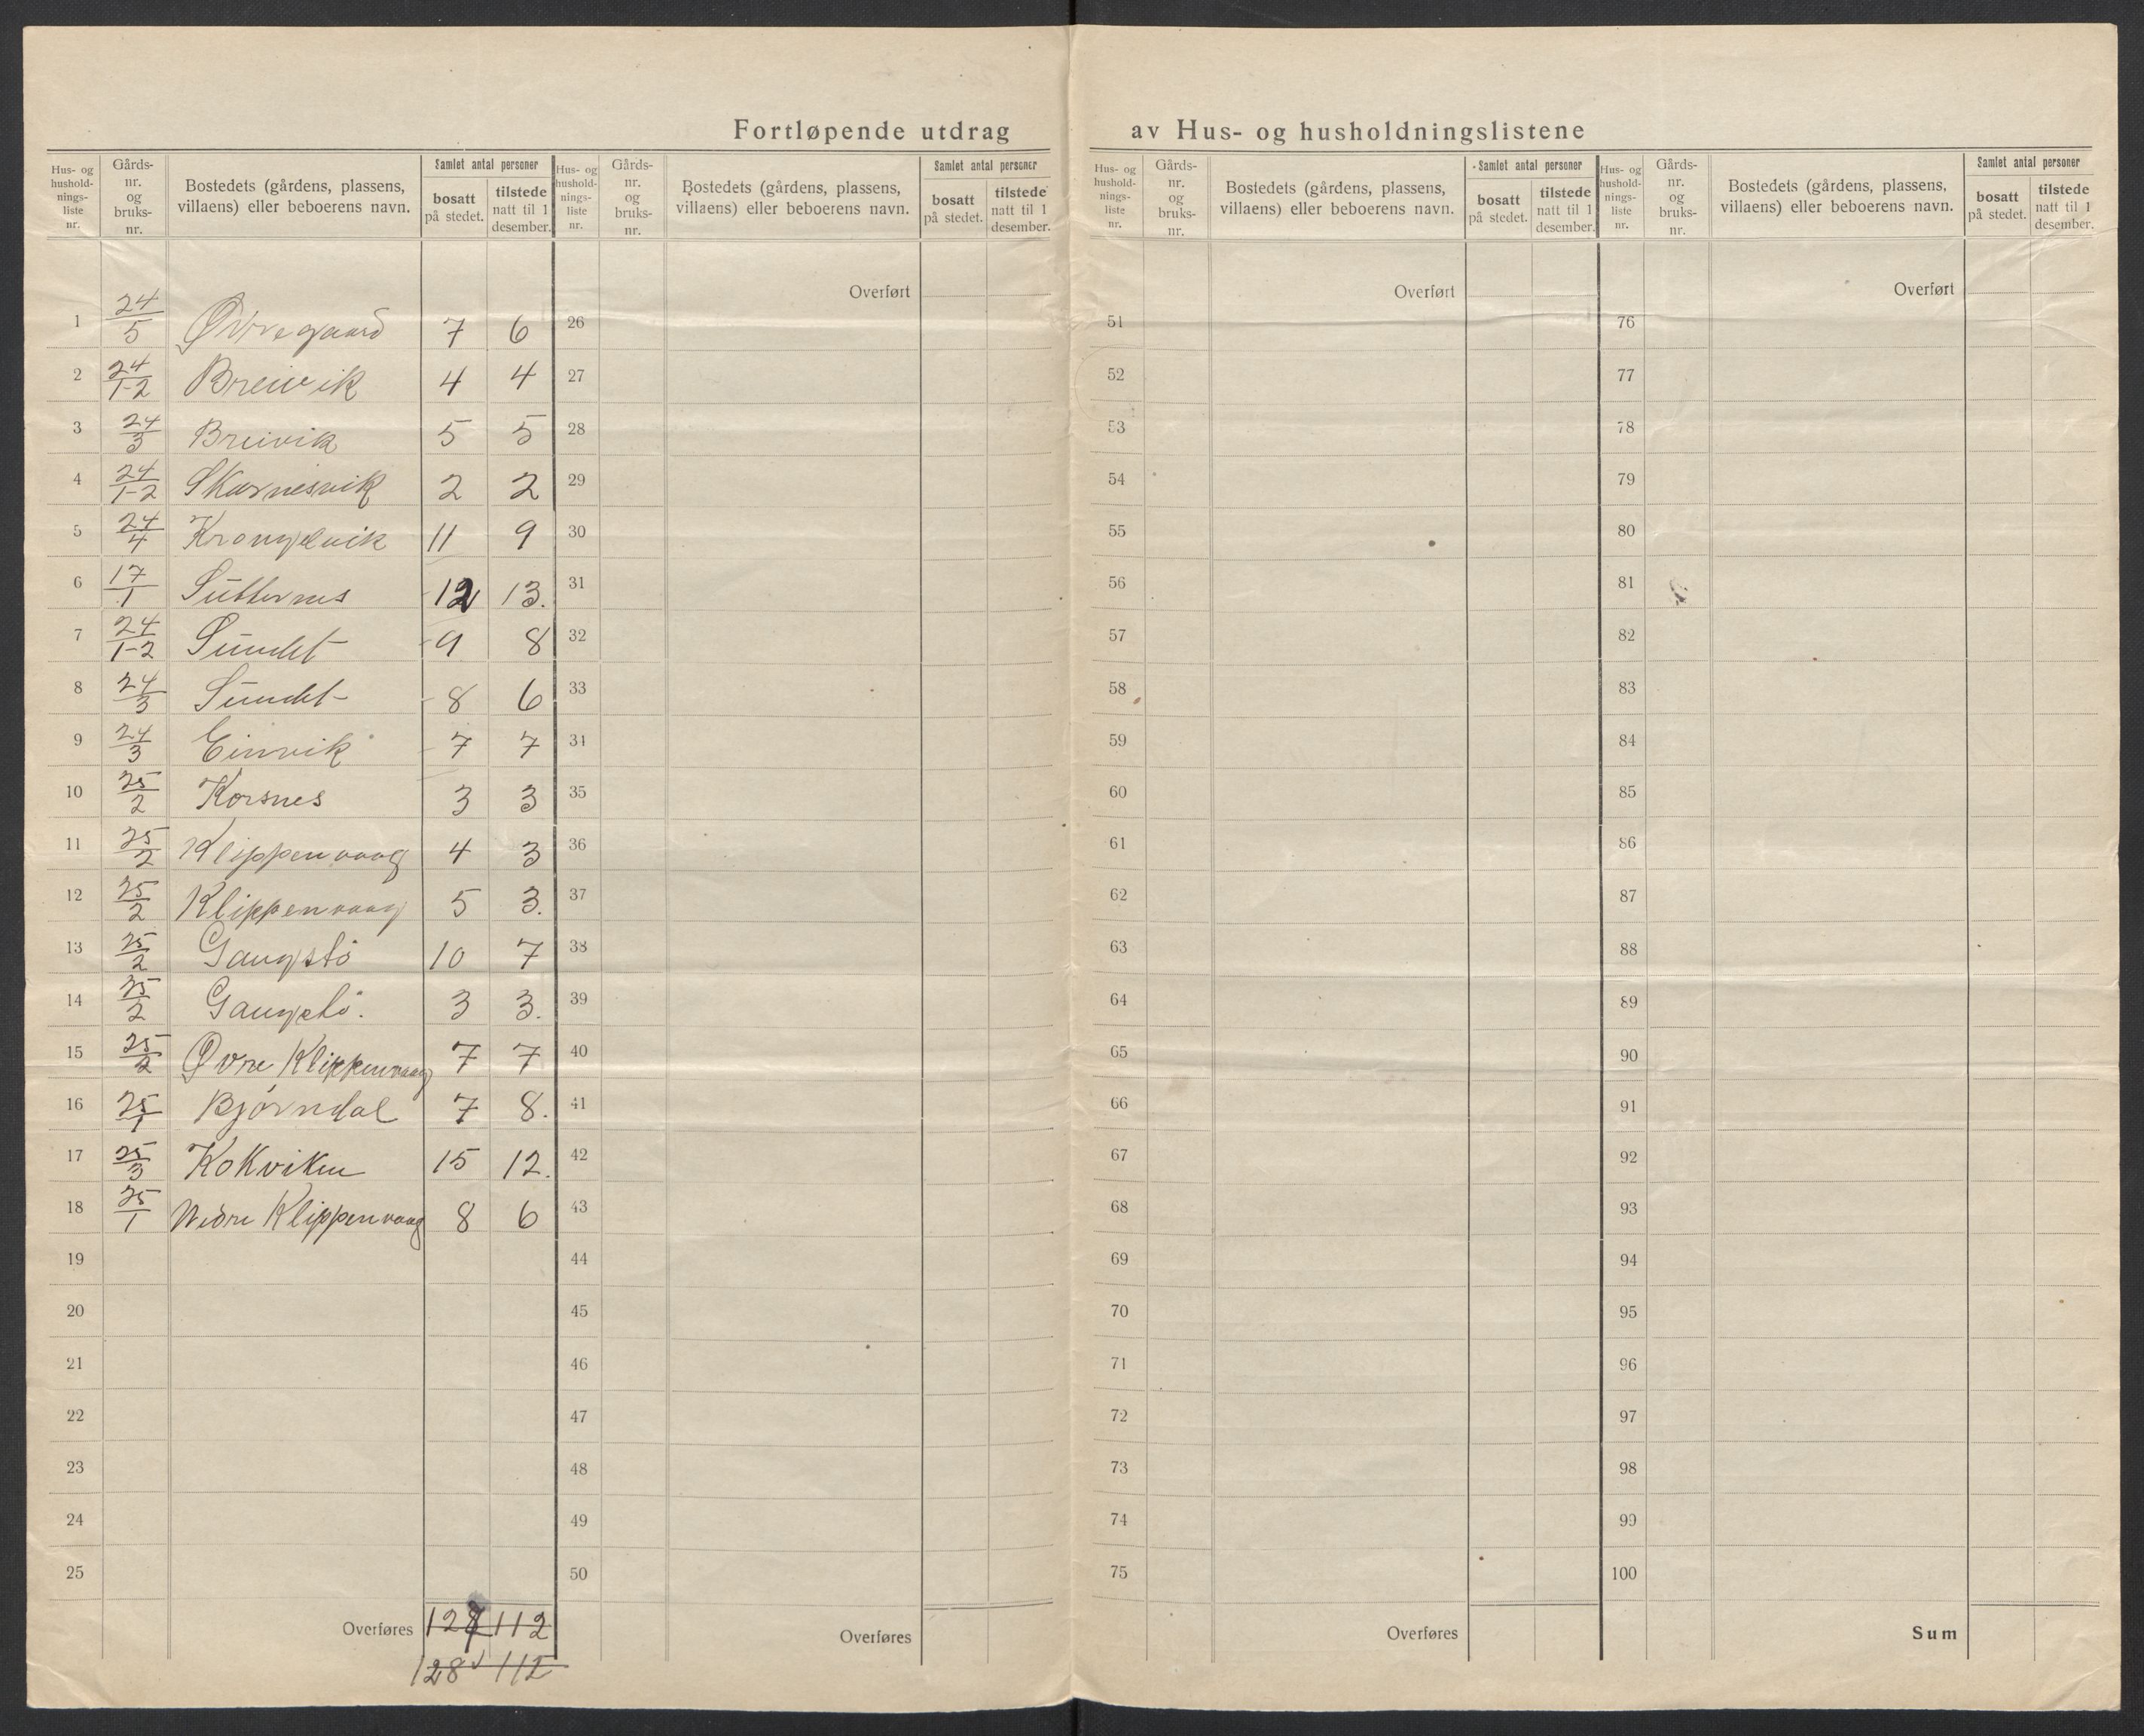 Fortløpende utdrag av Hus- og husholdningslistene
Hus- og hushold-nings-liste nr. | Gårds-nr. og bruks-nr. | Bostedets (gårdens, plassens, villaens) eller beboerens navn. | Samlet antal personer | bosatt på stedet. | tilstede natt til 1 desember.
Hus- og hushold-nings-liste nr. | Gårds-nr. og bruks-nr. | Bostedets (gårdens, plassens, villaens) eller beboerens navn. | Samlet antal personer | bosatt på stedet. | tilstede natt til 1 desember.
Hus- og hushold-nings-liste nr. | Gårds-nr. og bruks-nr. | Bostedets (gårdens, plassens, villaens) eller beboerens navn. | Samlet antal personer | bosatt på stedet. | tilstede natt til 1 desember.
Hus- og hushold-nings-liste nr. | Gårds-nr. og bruks-nr. | Bostedets (gårdens, plassens, villaens) eller beboerens navn. | Samlet antal personer | bosatt på stedet. | tilstede natt til 1 desember.
Overført Overført Overført
1 24/5 Øvregaard 7 6 26 51 76
2 24/1-2 Breivik 4 4 27 52 77
3 24/3 Breivik 5 5 28 53 78
4 24/1-2 Skarnesvik 2 2 29 54 79
5 24/4 Krongelvik 11 9 30 55 80
6 17/1 12 13. 31 56 81
7 24/1-2 Sundet 9 8 32 57 82
8 24/3 Sundet 8 6 33 58 83
9 24/3 Einvik 7 7 34 59 84
10 25/2 Korsnes 3 3 35 60 85
11 25/2 Klippenvaag 4 3 36 61 86
12 25/2 Klippenvaag 5 3. 37 62 87
13 25/2 Gangstö 10 7 38 63 88
14 25/2 Gangstö. 3 3. 39 64 89
15 25/2 Øvre Klippenvaag 7 7 40 65 90
16 25/1 Bjørndal 7 8. 41 66 91
17 25/3 Kokviken 15 12. 42 67 92
18 25/1 Nedre Klippenvaag 8 6 43 68 93
19 44 69 94
20 45 70 95
21 46 71 96
22 47 72 97
23 48 73 98
24 49 74 99
25 50 75 100
Overføres 127 112 Overføres Overføres Sum
128 112